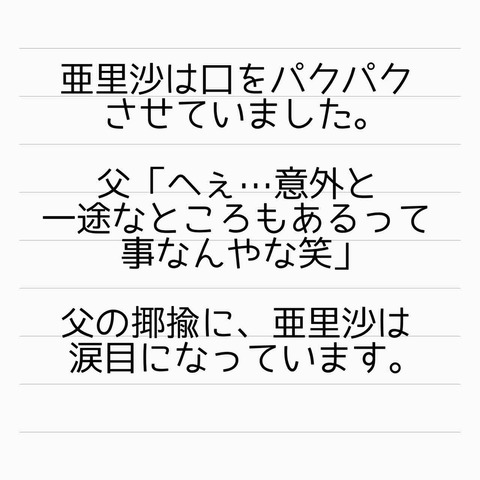 亜里沙は口をパクパク
させていました。
父「へぇ…意外と
一途なところもあるって
事なんやな笑」
父の揶揄に、亜里沙は
涙目になっています。